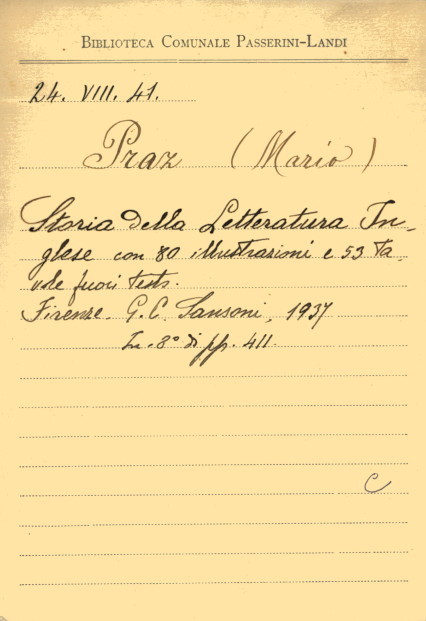 BIBLIOTECA COMUNALE PASSERINI-LANDI
24. VIII. 41.
Praz (Mario)
Storia della Letteratura In-
glese con 80 illustrazioni e 53 ta-
vole fuori testo.
Firenze. G. C. Sansoni, 1937
In. 8° di pp. 411.
C